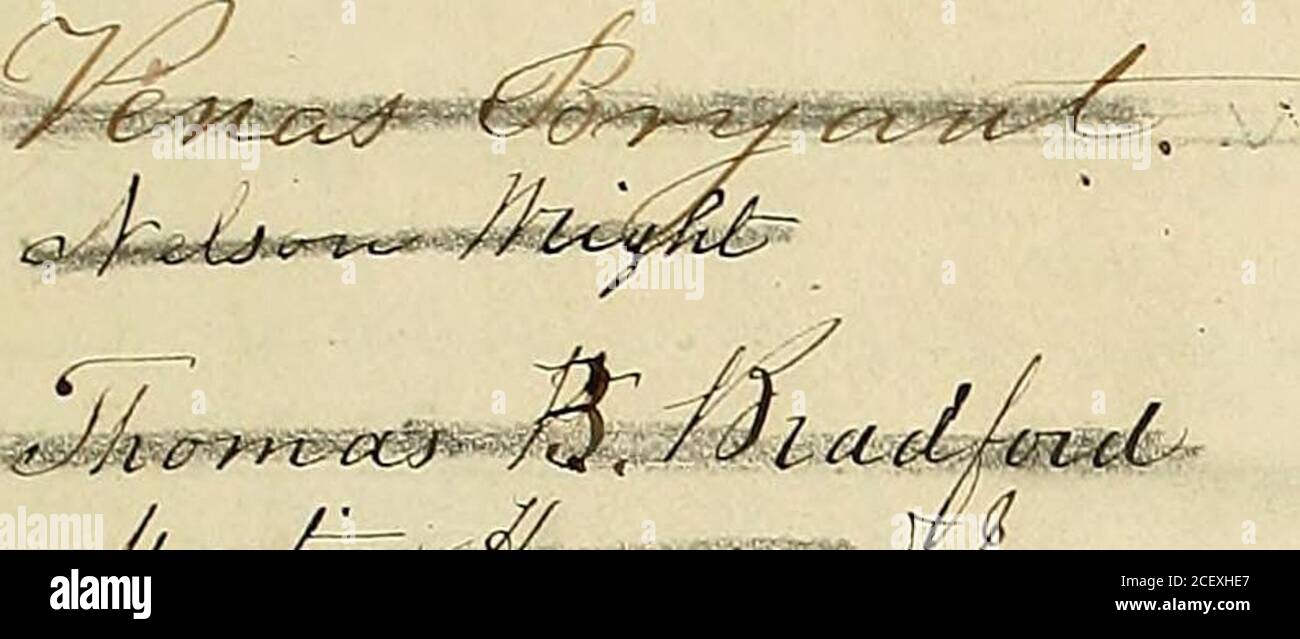 Venas Bryant.
Nelson Wright
Thomas B. Bradford
alamy
Image ID: 2CEXHE7
www.alamy.com